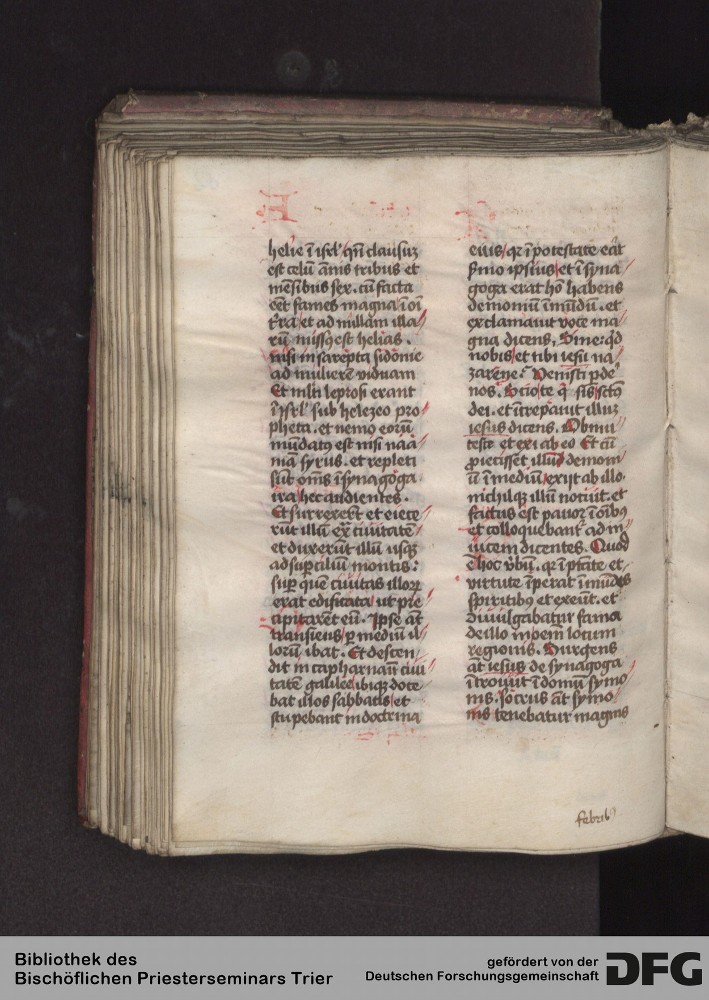 helie ī isrl' qn̄ clausuʒ
est celū ānis tribus et
mēsibus sex. cū facta
eēt fames magna ī oī
t'ra et ad nullam illa
rū missꝯ est helias.
nisi in sarepta sidonie
ad mulierē viduam
Et ml'ti leprosi erant
ī isrl' sub helezeo pro
pheta. et nemo eorū
mūdatꝯ est nisi naa
mā syrus. et repleti
sūt om̄s ī synagoga
ira hec audientes.
Et surrexer̄t et eiece
rūt illū ex̄ ciuitatē
et duxerūt illū usqʒ
ad supciliū montis:
sup̄ quē ciuitas illoꝝ
erat edificata ut pre
cipitarēt eū. Ipse aūt
transiens ꝑ mediū il
lorū ibat. Et descen
dit in capharnaū ciui
tatē galilee ibiqʒ doce
bat illos sabbatis et
stupebant in doctrina
eius qr ī potestate erat
s'mo ipsius et ī syna
goga erat hō habens
demoniū īmūdū. et
exclamauit voce ma
gna dicens, Sine: qd
nobis et tibi iesu na
zarene? Venisti p̄de
nos. Scio te qꝛ sis sctꝯ
dei. et īcrepauit illuʒ
iesus dicens. Obmu
tesce et exi ab eo Et cū
ꝓiecisset illud demoni
ū ī mediū exijt ab illo.
nichilqʒ illū nocuit. et
factus est pauor ī oībꝯ
et colloquebant̄ ad in
uicem dicentes. Quod
ē hoc v̄bū. qr ī ptāte et
virtute īperat īmūdis
spiritibꝯ et exeūt. et
diuulgabatur fama
de illo in oēm locum
regionis. Surgens
at̄ iesus de synagoga
ītrouit ī domū symo
nis. socrus aūt symo
nis tenebatur magnis
febribꝯ
Bibliothek des
Bischöflichen Priesterseminars Trier
gefördert von der
Deutschen Forschungsgemeinschaft
DFG